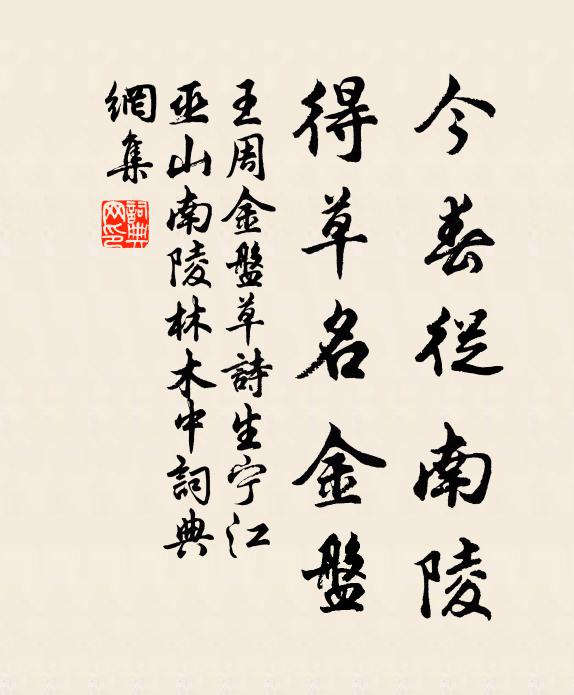 今春從南陵
得草名金盤
王周金盤草詩生宁江
巫山南陵林木中詞典
網集
詞典网印